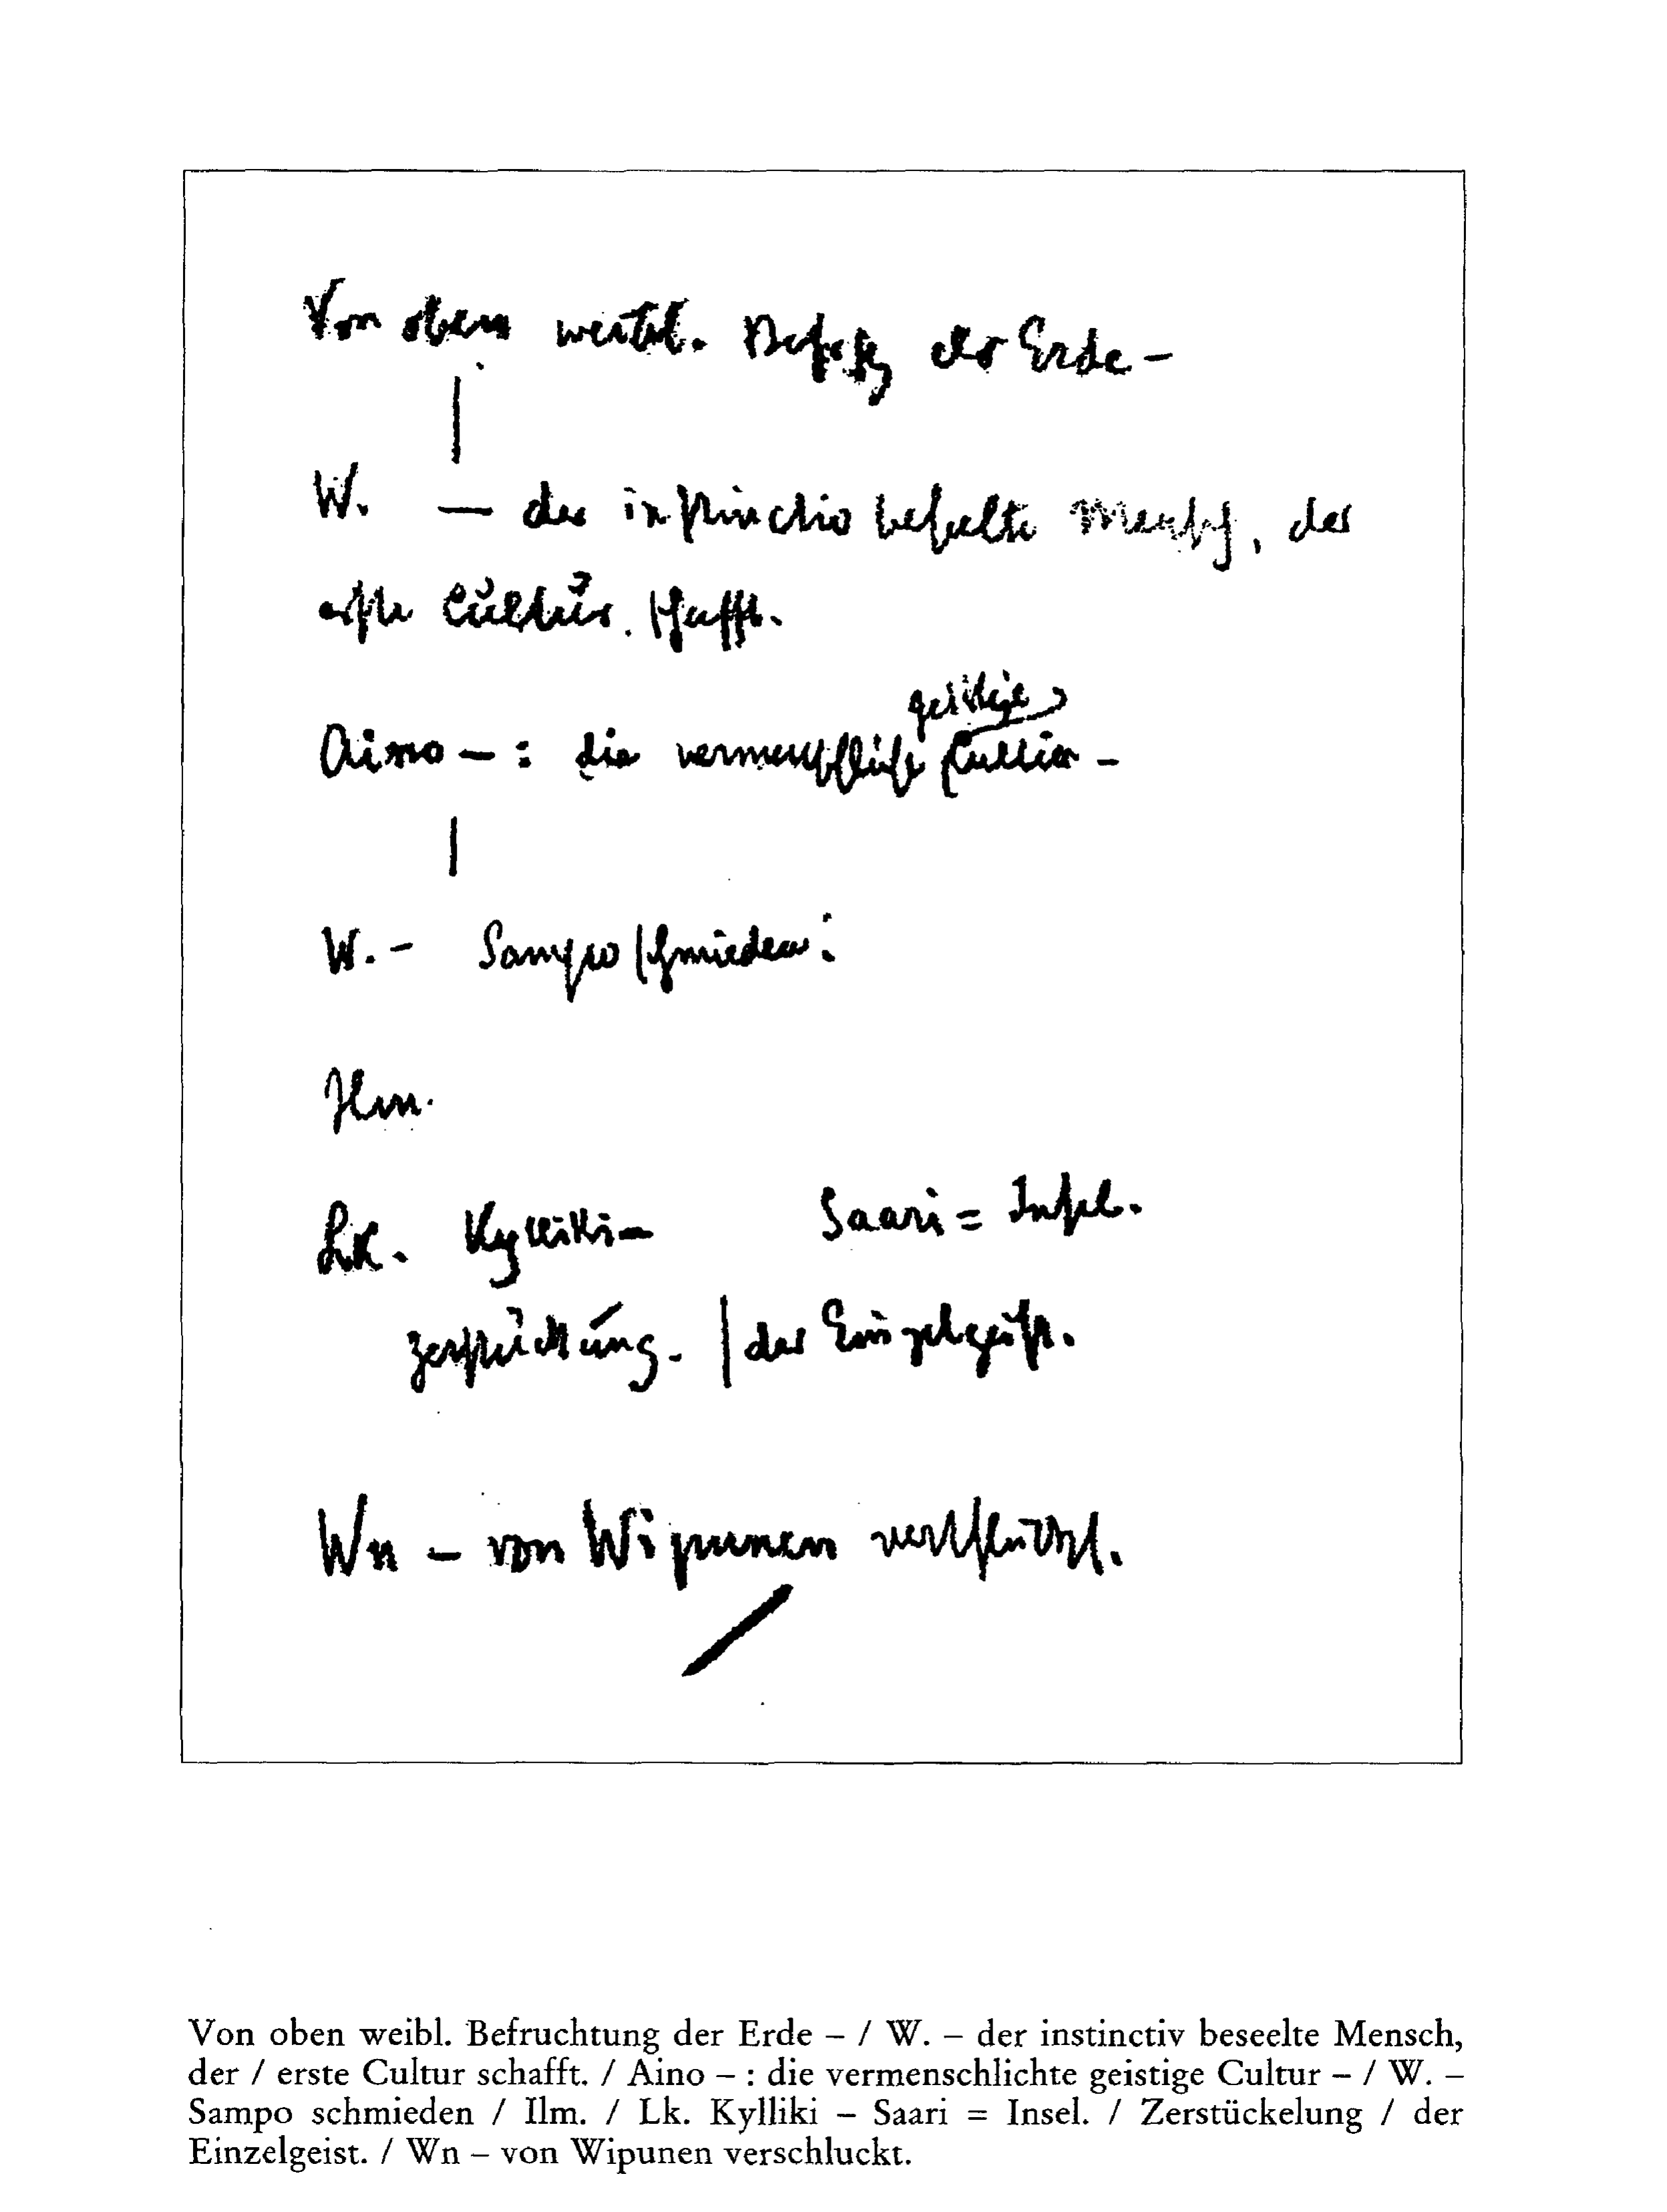 Von oben weibl. Befrchtg der Erde –
W. – der instinctiv beseelte Mensch, der
erste Cultur schafft.
geistige
Aino – : die vermenschlichte Cultur –
W. – Sampo schmieden :
Ilm.
Lk. Kylliki – Saari = Insel.
Zerstückelung. | der Einzelgeist.
Wn – von Wipunen verschluckt.
Von oben weibl. Befruchtung der Erde – / W. – der instinctiv beseelte Mensch,
der / erste Cultur schafft. / Aino – : die vermenschlichte geistige Cultur – / W. –
Sampo schmieden / Ilm. / Lk. Kylliki – Saari = Insel. / Zerstückelung / der
Einzelgeist. / Wn – von Wipunen verschluckt.